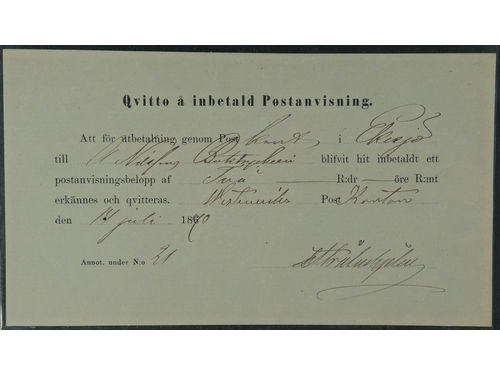 Qvitto å inbetald Postanvisning.
Att för utbetalning genom Post kont i Eksjö
till Boktryckeri blifvit hit inbetaldt ett
postanvisningsbelopp af Två — R:dr — öre R:mt
erkännes och qvitteras. Westerviks Post Kontor
den 14 juli 1860
Annot. under N:o 21